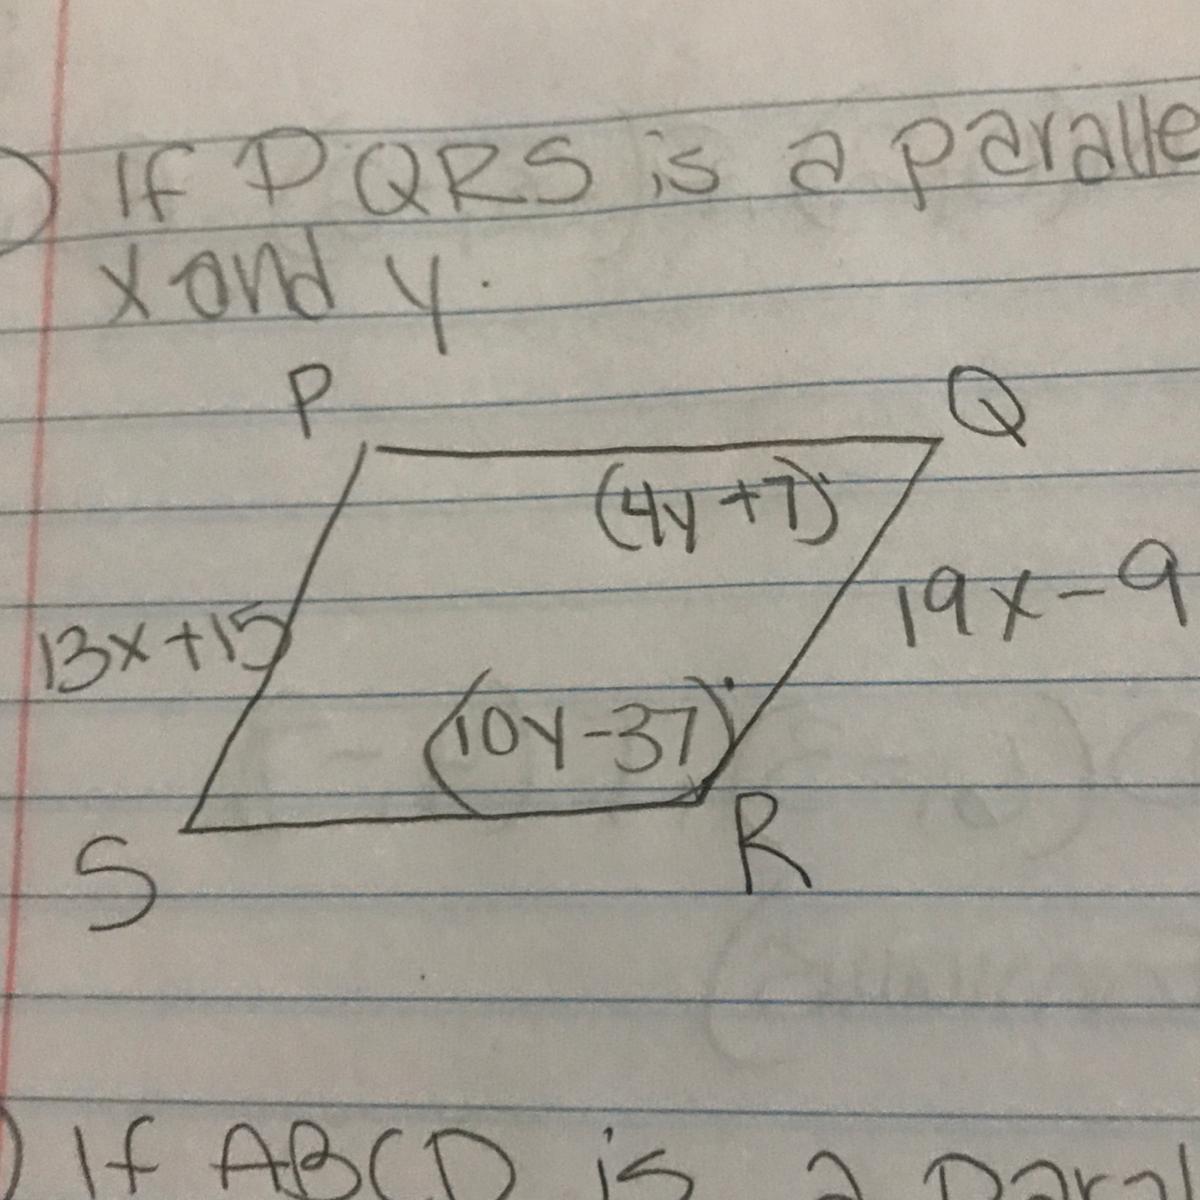 ) If PQRS is a paralle
x and y.
P
Q
(4y+7)°
13x+15
19x-9
(10y-37)°
S
R
) If ABCD is a paral